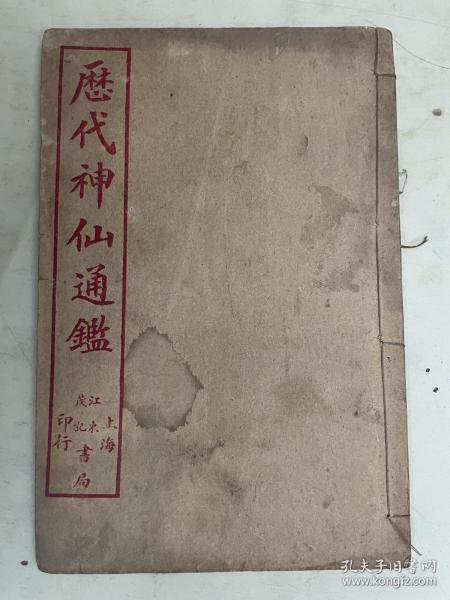 歷代神仙通鑑
上海
江東
茂記
書局
印行
孔夫子旧书网
www.kongfz.com